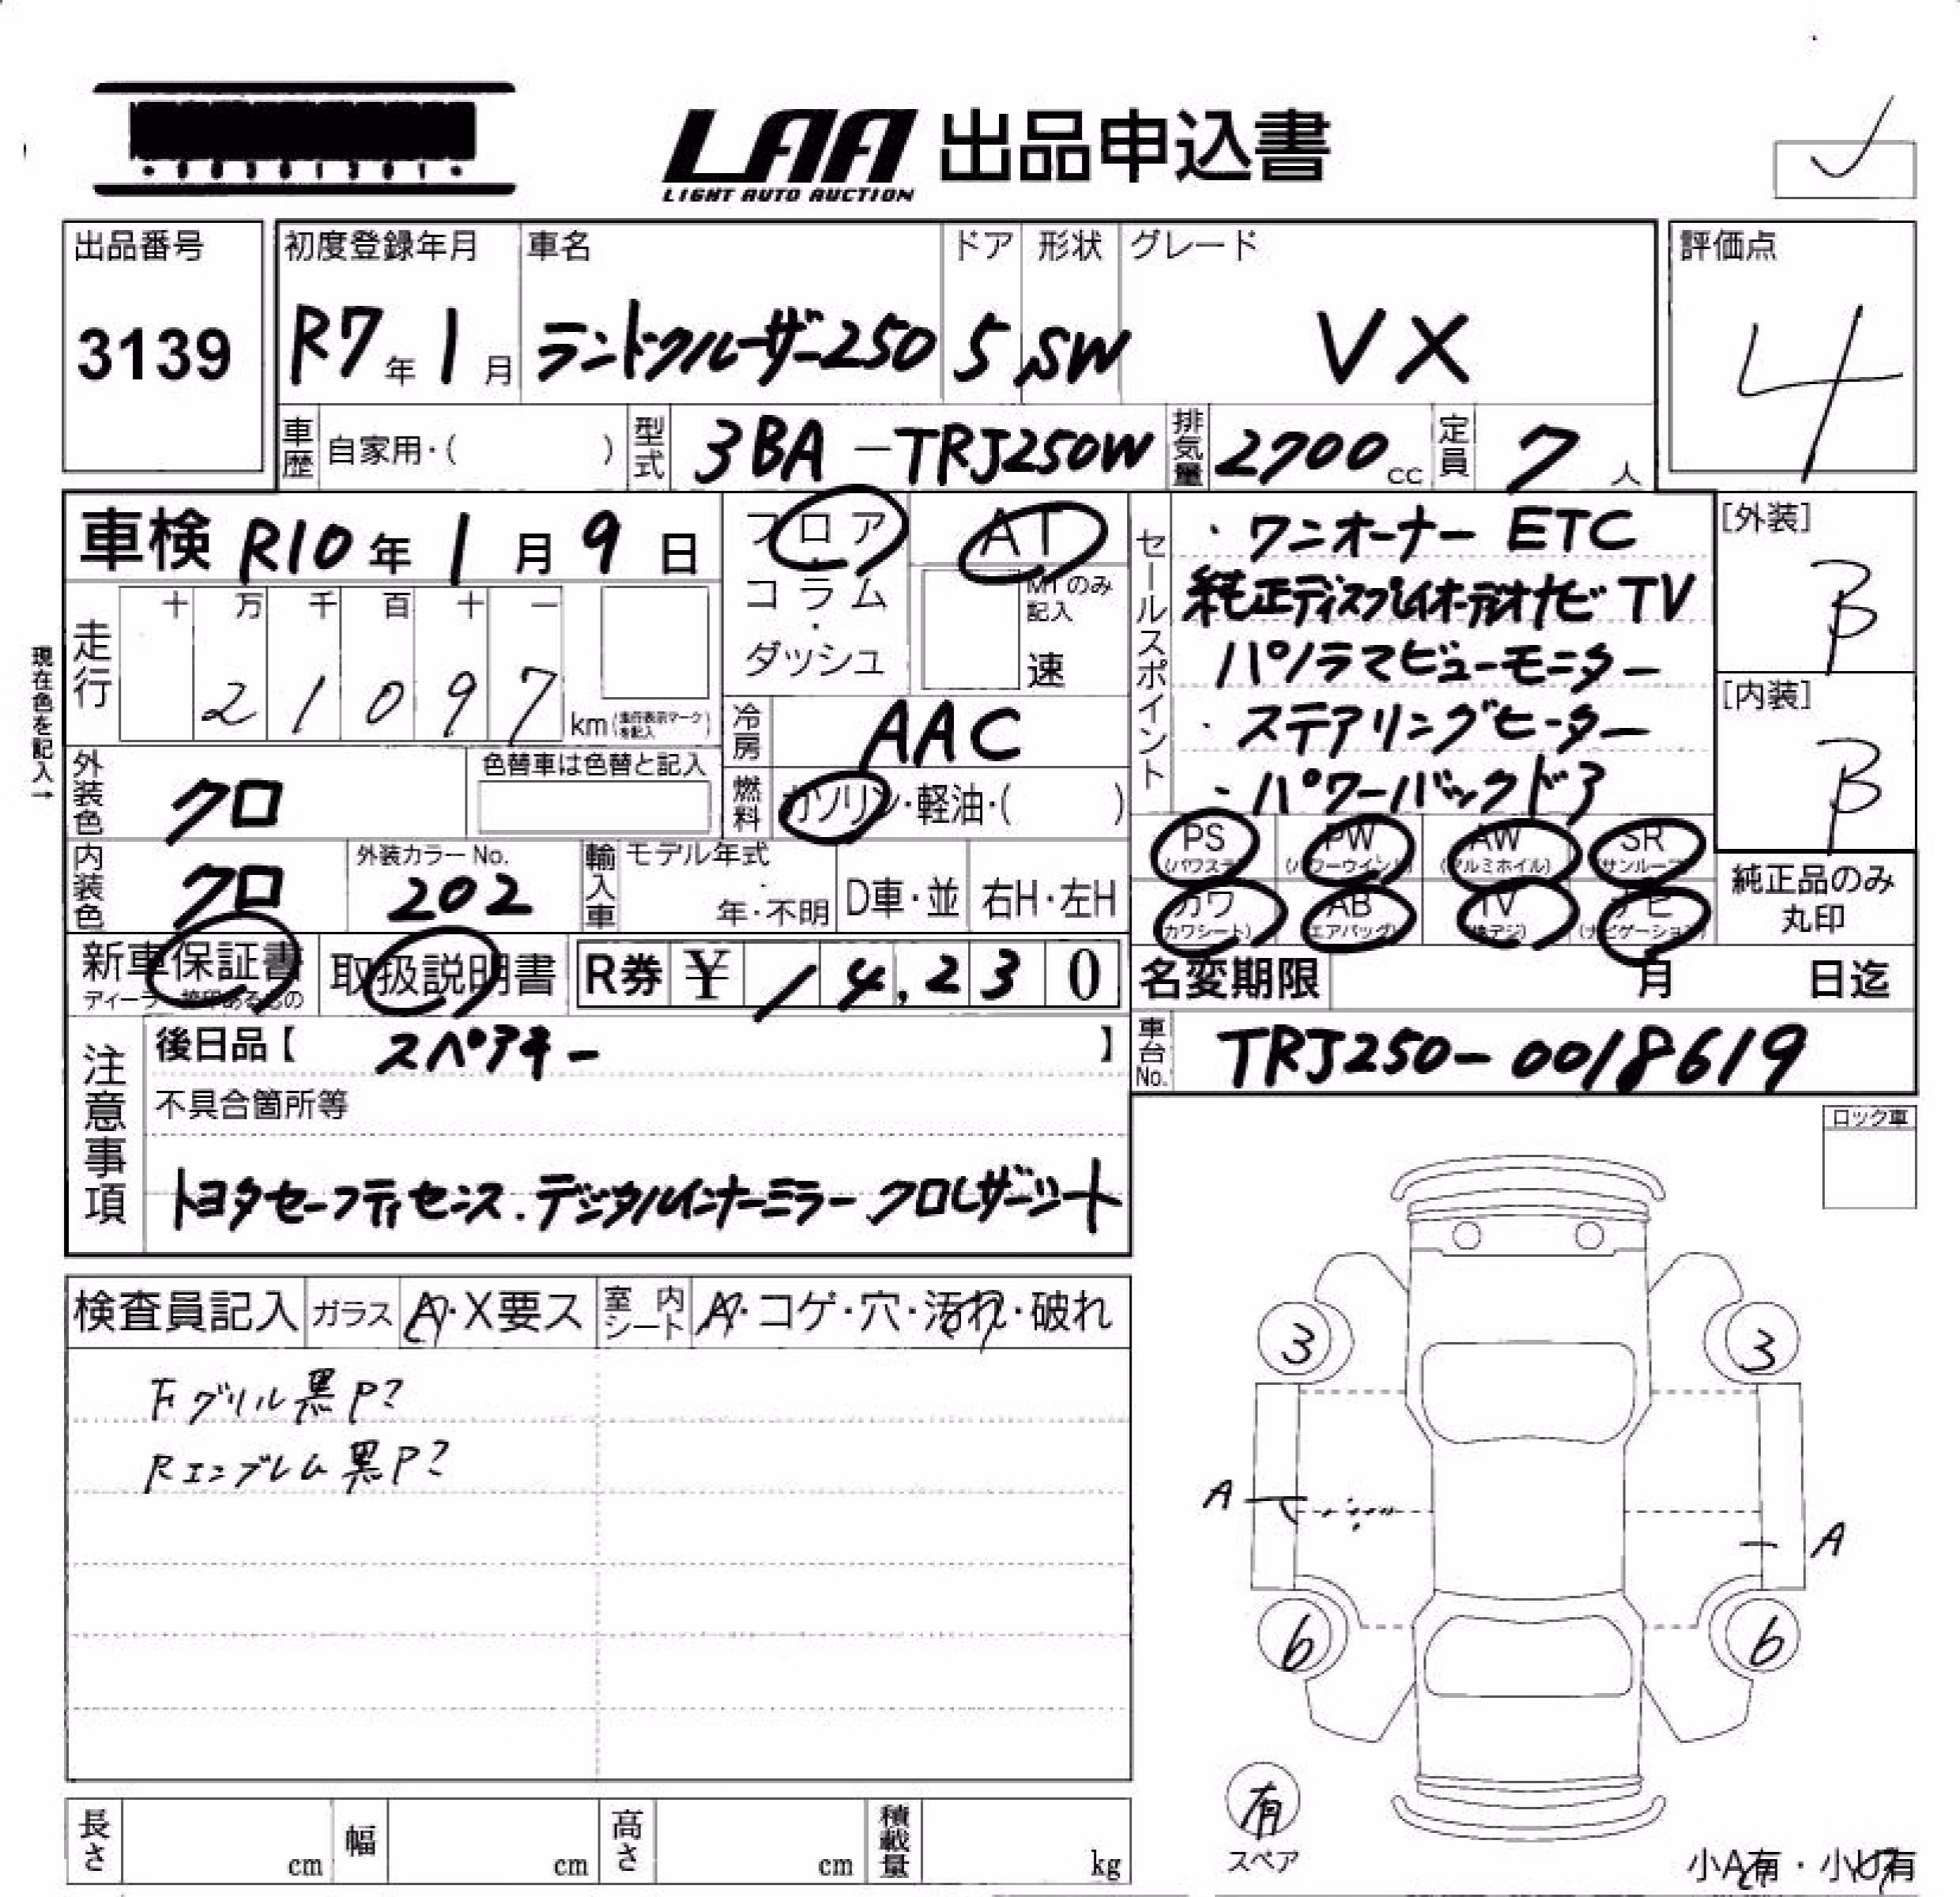 LAA 出品申込書
LIGHT AUTO AUCTION
出品番号
3139
初度登録年月
R7年1月
車名
ランドクルーザー250
ドア
5
形状
SW
グレード
VX
評価点
4
車歴 自家用・( )
型式 3BA-TRJ250W
排気量 2700cc
定員 7人
車検 R10年1月9日
フロア・コラム・ダッシュ
AT
MTのみ記入
速
セールスポイント
・ワンオーナー ETC
純正ディスプレイオーディオナビ TV
パノラマビューモニター
・ステアリングヒーター
・パワーバックドア
[外装]
B
[内装]
B
現在色を記入→
走行
十 万 千 百 十 一
2 1 0 9 7
km(走行表示マークを記入)
冷房 AAC
燃料 ガソリン・軽油・( )
外装色 クロ
色替車は色替と記入
内装色 クロ
外装カラーNo.
202
輸入車
モデル年式
年・不明
D車・並
右H・左H
PS (パワステ)
PW (パワーウインド)
AW (アルミホイル)
SR (サンルーフ)
カワ (カワシート)
AB (エアバッグ)
TV (地デジ)
ナビ (ナビゲーション)
純正品のみ丸印
新車保証書
取扱説明書
R券 ¥ 14,230
名変期限 月 日迄
注意事項
後日品【 スペアキー 】
不具合箇所等
トヨタセーフティセンス.デジタルインナーミラー クロレザーシート
車台No. TRJ250-0018619
ロック車
検査員記入
ガラス A・X要ス
室内シート A・コゲ・穴・汚れ・破れ
Fグリル黒P?
Rエンブレム黒P?
3 3
A
A
6 6
有
スペア
小A有・小U有
長さ cm
幅 cm
高さ cm
積載量 kg